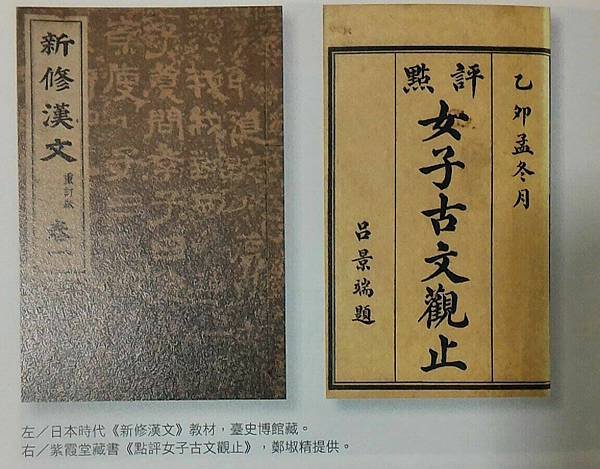 新修漢文
重訂版
卷一
乙卯孟冬月
評點
女子古文觀止
呂景端題
左／日本時代《新修漢文》教材，臺史博館藏。
右／紫霞堂藏書《點評女子古文觀止》，鄭椒精提供。